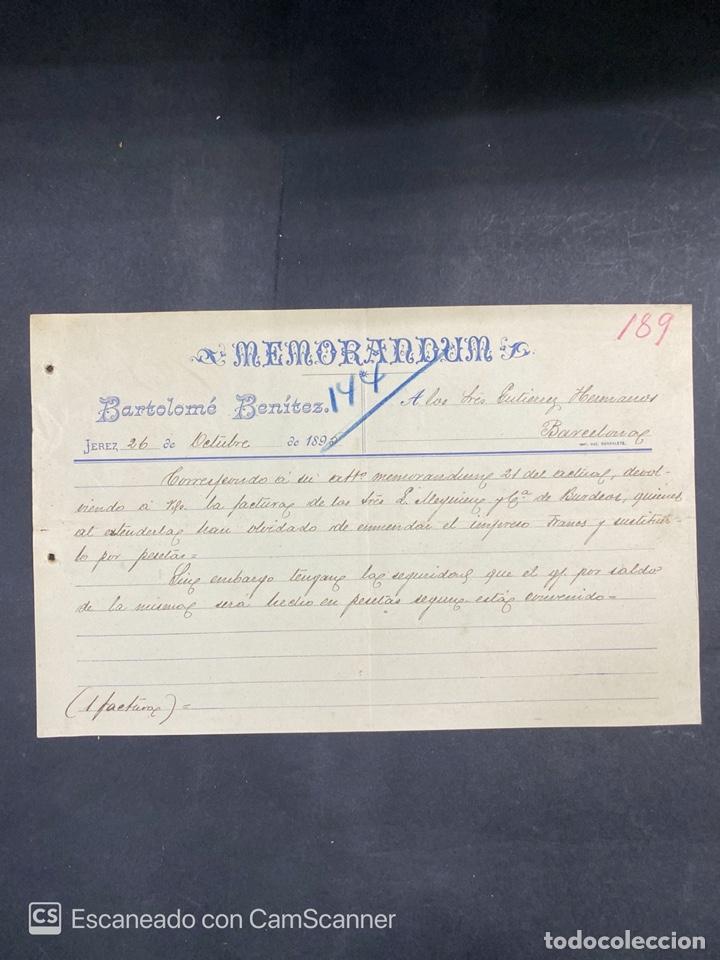 189
MEMORANDUM
144
Bartolomé Benítez.
A los Sres Gutierrez Hermanos
Barcelona
JEREZ, 26 de Octubre de 1895
Correspondo á su attº memorandum 21 del actual, devol-
viendo á Vds. la factura de los Sres L. y Cª de Burdeos, quienes
al estenderla han olvidado de enmendar el impreso Francs y sustituir-
lo por pesetas=
Sin embargo tengan la seguridad que el gº por saldo
de la misma será hecho en pesetas segun está convenido=
(1 factura)=
CS Escaneado con CamScanner
todocoleccion